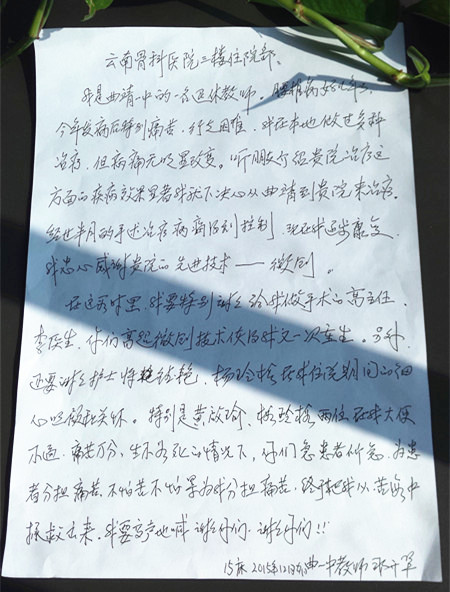 云南骨科医院三楼住院部。
我是曲靖一中的一名退休教师。腰椎病好几年了,
今年发病后特别痛苦,行走困难,我在本地做过多种
治疗,但病痛无明显改变。听朋友介绍贵院治疗这
方面的疾病效果显著我就下决心从曲靖到贵院来治疗。
经过半月的手术治疗病痛得到控制,现在我逐步康复,
我忠心感谢贵院的先进技术——微创。
在这家里,我要特别谢谢给我做手术的高主任,
李医生,你们高超微创技术使得我又一次重生。另外,
还要谢谢护士 杨玲 在我住院期间的细
心照顾和关怀。特别是黄 瑜,杨玲 两位在我大便
不通,痛苦万分,生不如死的情况下,你们急患者所急,为患
者分担痛苦,不怕苦不怕累为我分担痛苦,终于把我从苦海中
拯救出来,我要高声地喊 谢谢你们,谢谢你们!!
15床 2015年12月 曲一中教师 邓